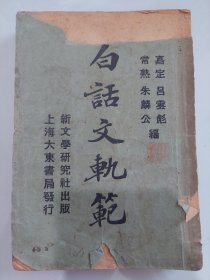 嘉定 呂雲彪
常熟 朱麟公 編
白話文軌範
新文學研究社出版
上海大東書局發行